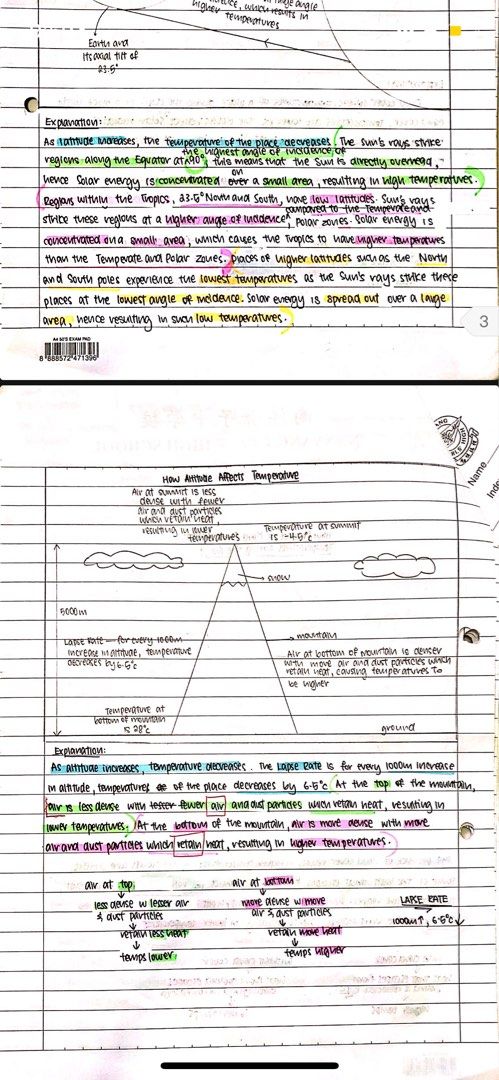 higher temperatures
Earth and
its axial tilt of
23.5°
Explanation:
As latitude increases, the temperature of the place decreases. The sun's rays strike
the highest angle of incidence of
regions along the Equator at 90°, this means that the Sun is directly overhead,
hence Solar energy is concentrated over on a small area, resulting in high temperatures.
Regions within the Tropics, 23.5° North and South, have low latitudes. Sun's rays
compared to the Temperate and
strike these regions at a higher angle of incidence, Polar zones. Solar energy is
concentrated on a small area, which causes the Tropics to have higher temperatures
than the Temperate and Polar zones. places of higher latitudes such as the North
and South poles experience the lowest temperatures as the Sun's rays strike these
places at the lowest angle of incidence. Solar energy is spread out over a large
area, hence resulting in such low temperatures.
A4 50'S EXAM PAD
8 888572 471396
3
Name
How Altitude Affects Temperature
Air at summit is less
dense with fewer
air and dust particles
which retain heat,
resulting in lower
temperatures
Temperature at summit
is -4.5°c
snow
5000m
mountain
Lapse Rate - for every 1000m
increase in altitude, temperature
decreases by 6.5°c
Air at bottom of mountain is denser
with more air and dust particles which
retain heat, causing temperatures to
be higher
Temperature at
bottom of mountain
is 28°c
ground
Explanation:
As altitude increases, temperature decreases. The Lapse Rate is for every 1000m increase
in altitude, temperatures of the place decreases by 6.5°c. At the top of the mountain,
air is less dense with lesser fewer air and dust particles which retain heat, resulting in
lower temperatures. At the bottom of the mountain, air is more dense with more
air and dust particles which retain heat, resulting in higher temperatures.
air at top
less dense w lesser air
& dust particles
retain less heat
temps lower
air at bottom
more dense w more
air & dust particles
retain more heat
temps higher
LAPSE RATE
1000m↑, 6.5°c↓